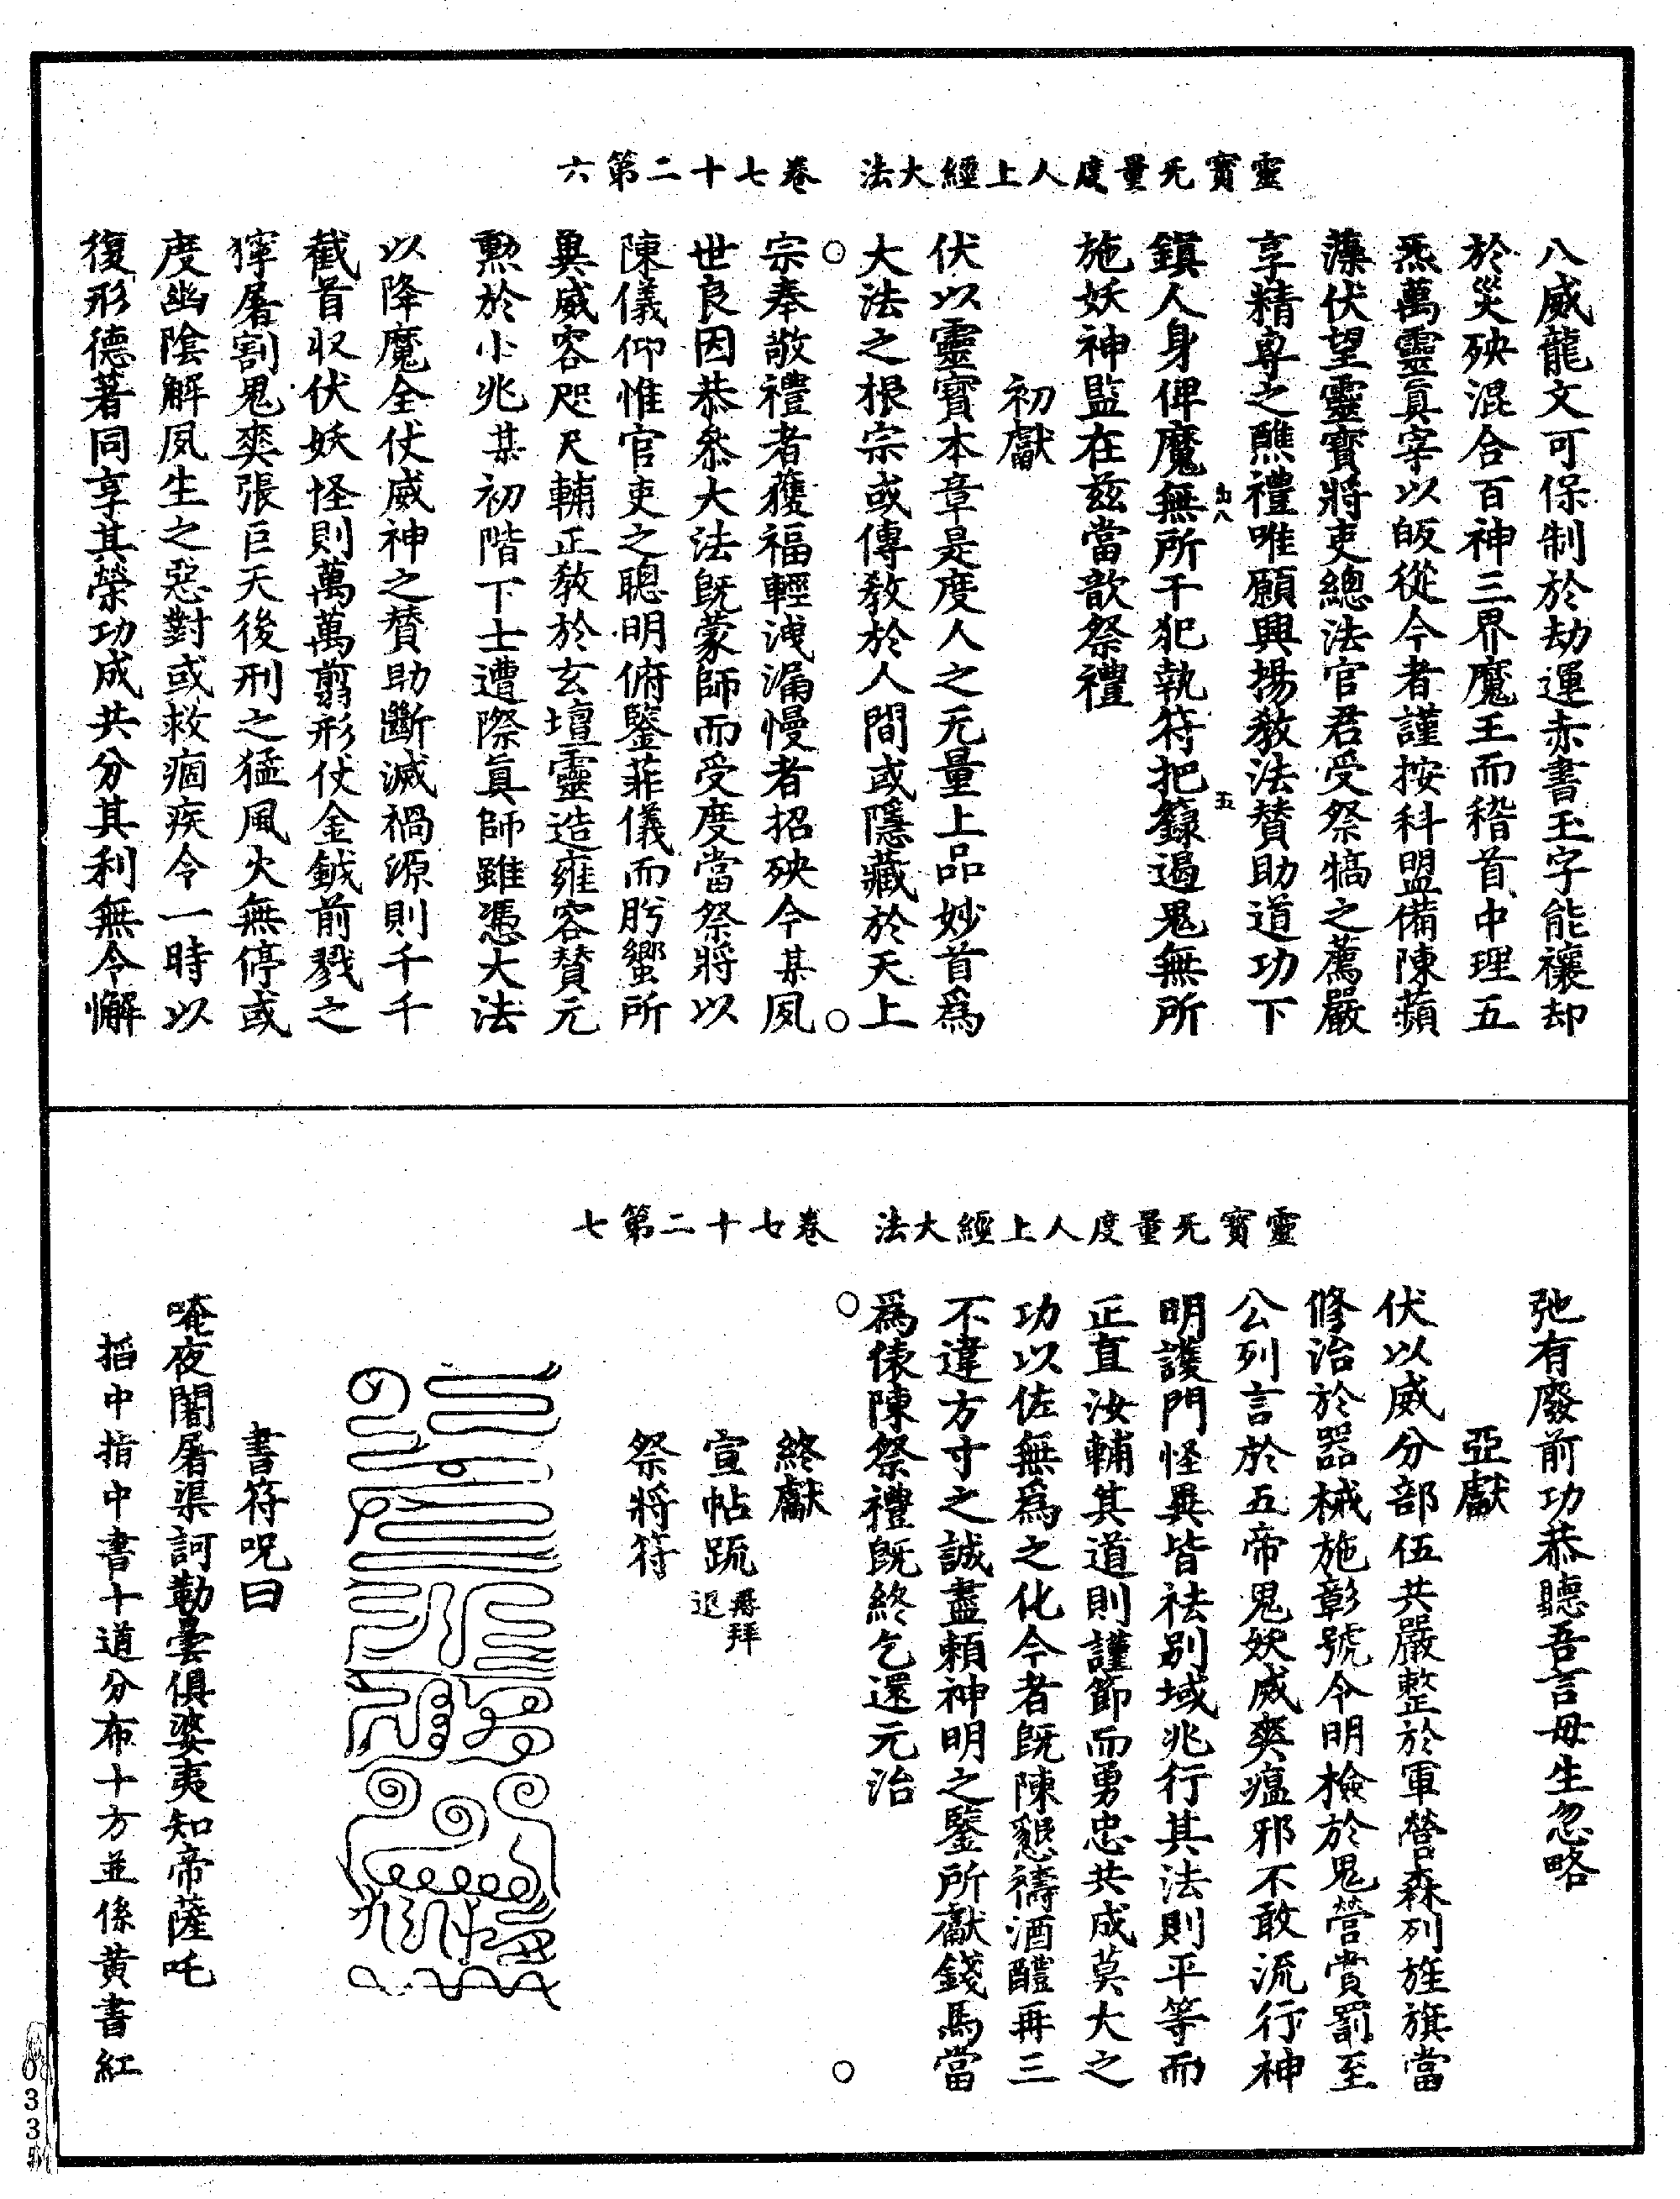 靈寳无量度人上經大法　卷七十二第六
八威龍文可保制於劫運赤書玉字能禳却
於災殃混合百神三界魔王而稽首中理五
炁萬靈眞宰以皈從今者謹按科盟備陳蘋
藻伏望靈寳將吏總法官君受祭犒之薦嚴
享精專之醮禮唯願興揚教法賛助道功下
鎭人身俾魔無所干犯執符把籙遏鬼無所
施妖神監在兹當歆祭禮
初獻
伏以靈寳本章是度人之无量上品妙首爲
大法之根宗或傳教於人間或隱藏於天上
宗奉敬禮者獲福輕洩漏慢者招殃今某夙
世良因恭叅大法旣蒙師而受度當祭將以
陳儀仰惟官吏之聰明俯鑒菲儀而肹蠁所
兾威容咫尺輔正教於玄壇靈造雍容賛元
勲於小兆某初階下士遭際眞師雖憑大法
以降魔全仗威神之賛助斷滅禍源則千千
截首収伏妖怪則萬萬翦形仗金鉞前戮之
獰屠割鬼爽張巨天後刑之猛風火無停或
度幽陰解夙生之惡對或救痼疾令一時以
復形德著同享其榮功成共分其利無令懈
靈寳无量度人上經大法　卷七十二第七
弛有廢前功恭聽吾言毋生忽略
亞獻
伏以威分部伍共嚴整於軍營森列旌旗當
修治於器械施彰號令明檢於鬼營賞罰至
公列言於五帝鬼妖威爽瘟邪不敢流行神
明護門怪異皆祛别域兆行其法則平等而
正直汝輔其道則謹節而勇忠共成莫大之
功以佐無爲之化今者旣陳懇禱酒醴再三
不違方寸之誠盡頼神明之鑒所獻錢馬當
爲俵陳祭禮旣終乞還元治
終獻
宣帖䟽再拜退
祭將符
書符呪曰
唵夜闍屠渠訶勒曇俱婆夷知帝薩吒
搯中指中書十道分布十方並係黃書紅
033